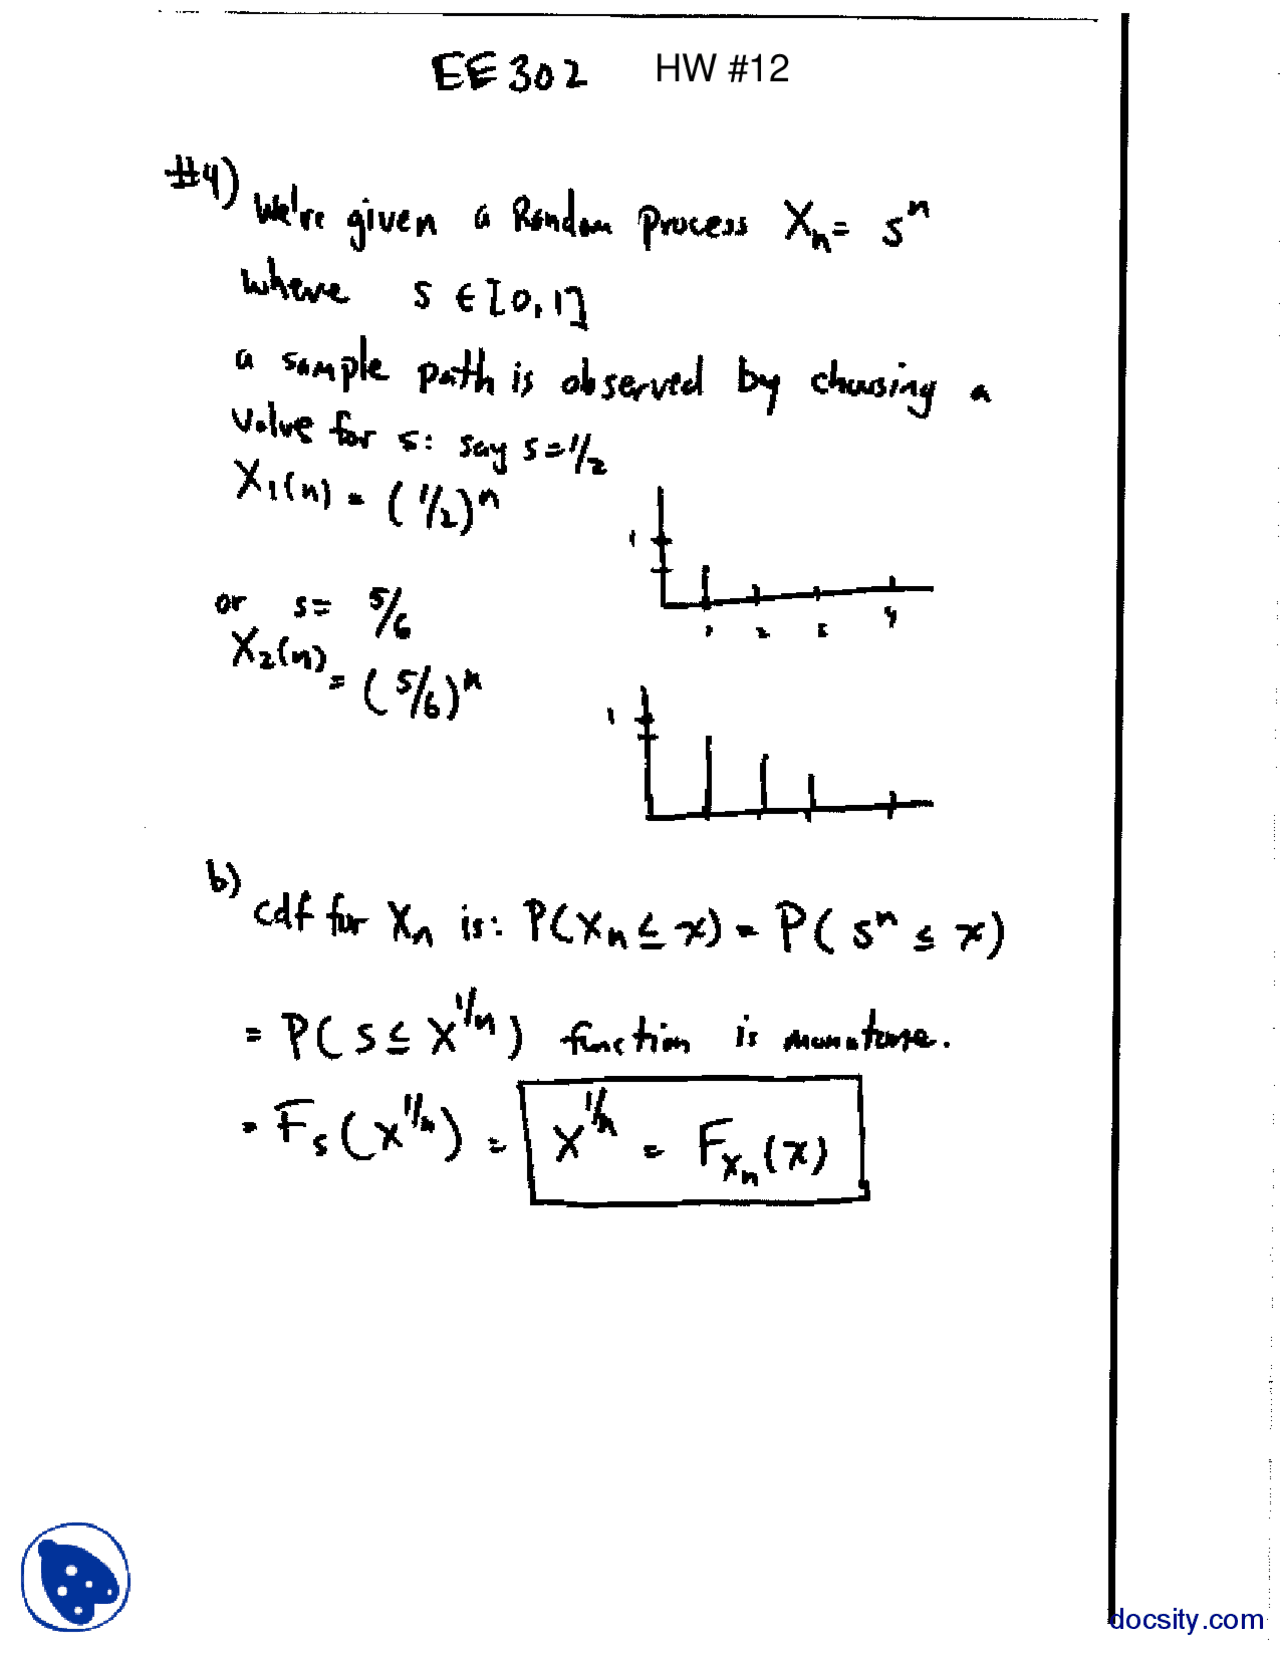 EE 302 HW #12
#4) We're given a Random Process Xₙ = sⁿ
where s ∈ [0,1]
a sample path is observed by choosing a
value for s: say s = 1/2
X₁(n) = (1/2)ⁿ
1
1 2 3 4
or s = 5/6
X₂(n) = (5/6)ⁿ
1
b)
cdf for Xₙ is: P(Xₙ ≤ x) = P(sⁿ ≤ x)
= P(s ≤ x^1/n) function is monotone.
= Fₛ(x^1/n) = x^1/n = F_Xₙ(x)
docsity.com